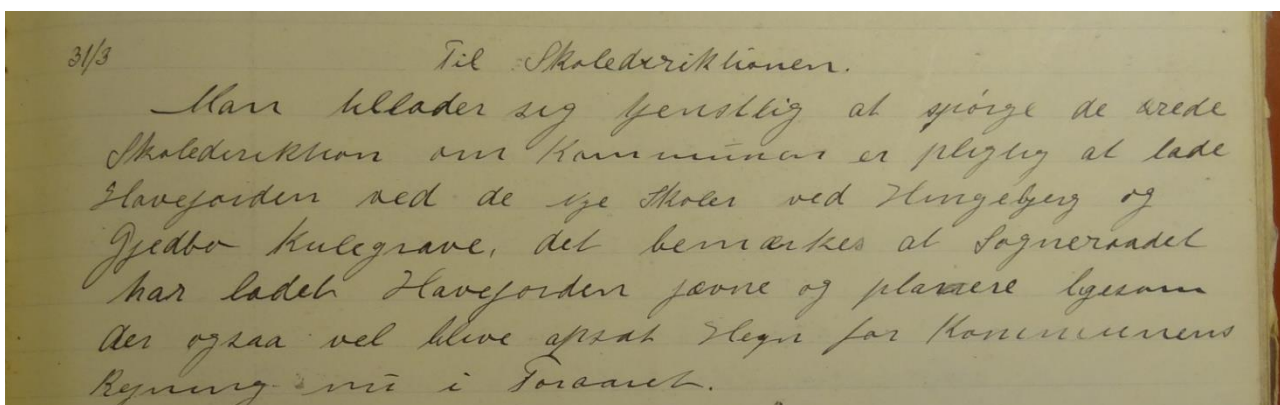 31/3 Til Skoledirektionen.
Man tillader sig tjenstlig at spörge de ærede
Skoledirektion om Kommunen er pligtig at lade
Havejorden ved de nye Skoler ved Hingebjerg og
Gjedbo Kulegrave, det bemærkes at Sogneraadet
har ladet Havejorden jævne og planere ligesom
der ogsaa vel blive opsat Hegn for Kommunens
Regning nu i Foraaret.